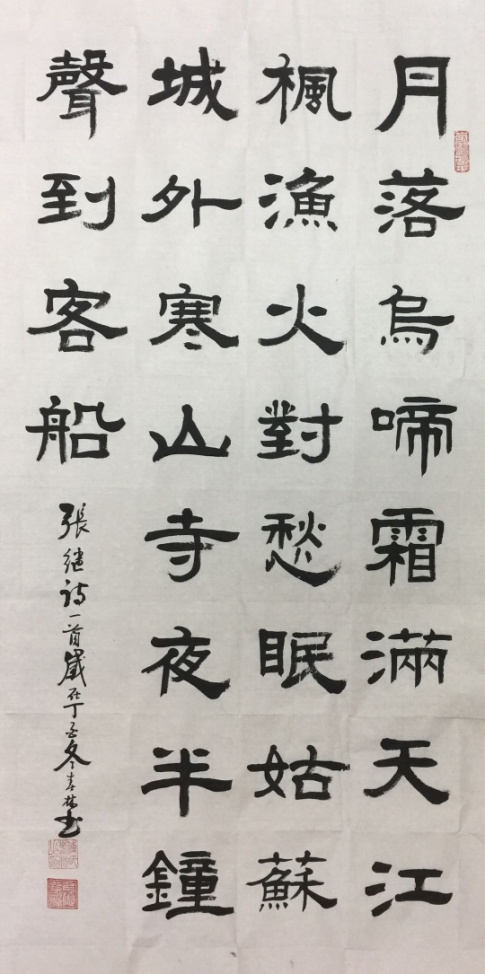 月落烏啼霜滿天江
楓漁火對愁眠姑蘇
城外寒山寺夜半鐘
聲到客船
張繼詩一首歲在丁丑冬書